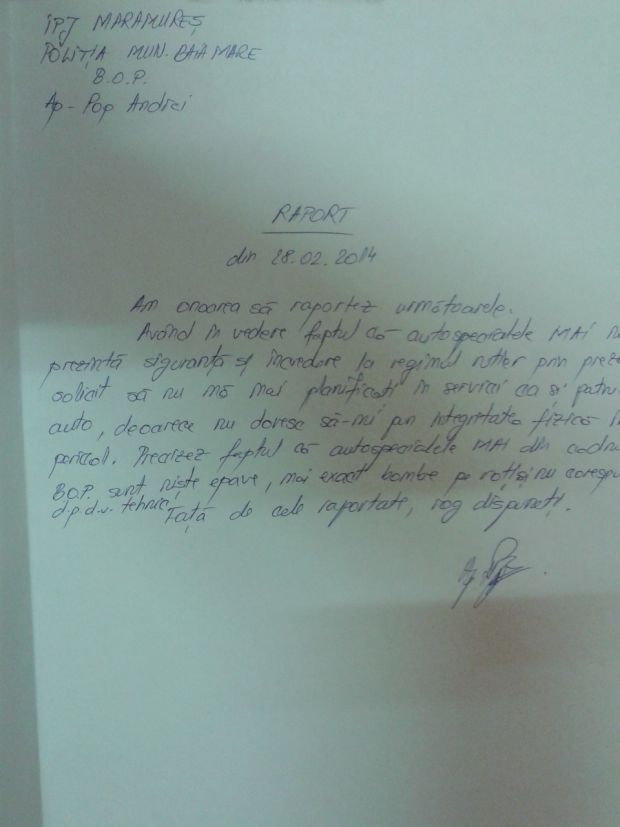 IPJ MARAMUREȘ
POLIȚIA MUN. BAIA MARE
B.O.P.
Ap - Pop Andrei
RAPORT
din 28.02.2014
Am onoarea să raportez următoarele.
Având în vedere faptul că autospecialele MAI nu
prezintă siguranță și încredere la regimul rutier prin
solicit să nu mă mai planificați în servicii ca și
auto, deoarece nu doresc să-mi pun integritatea fizică în
pericol. Precizez faptul că autospecialele MAI din
B.O.P. sunt niște epave, mai exact bombe pe roți și nu
d.p.d.v. tehnic.
Față de cele raportate, rog dispuneți.
Ap.